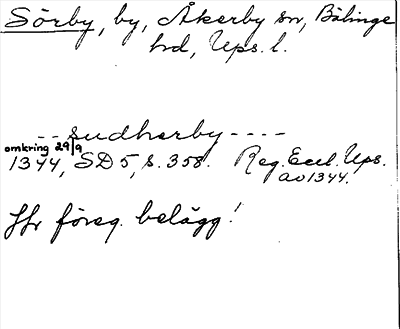 Sörby, by, Åkerby sn, Bälinge
hd, Ups. l.
-- sudherby ----
omkring 29/9
1344, SD 5, s. 358. Reg. Eccl. Ups.
av 1344.
Jfr föreg. belägg!